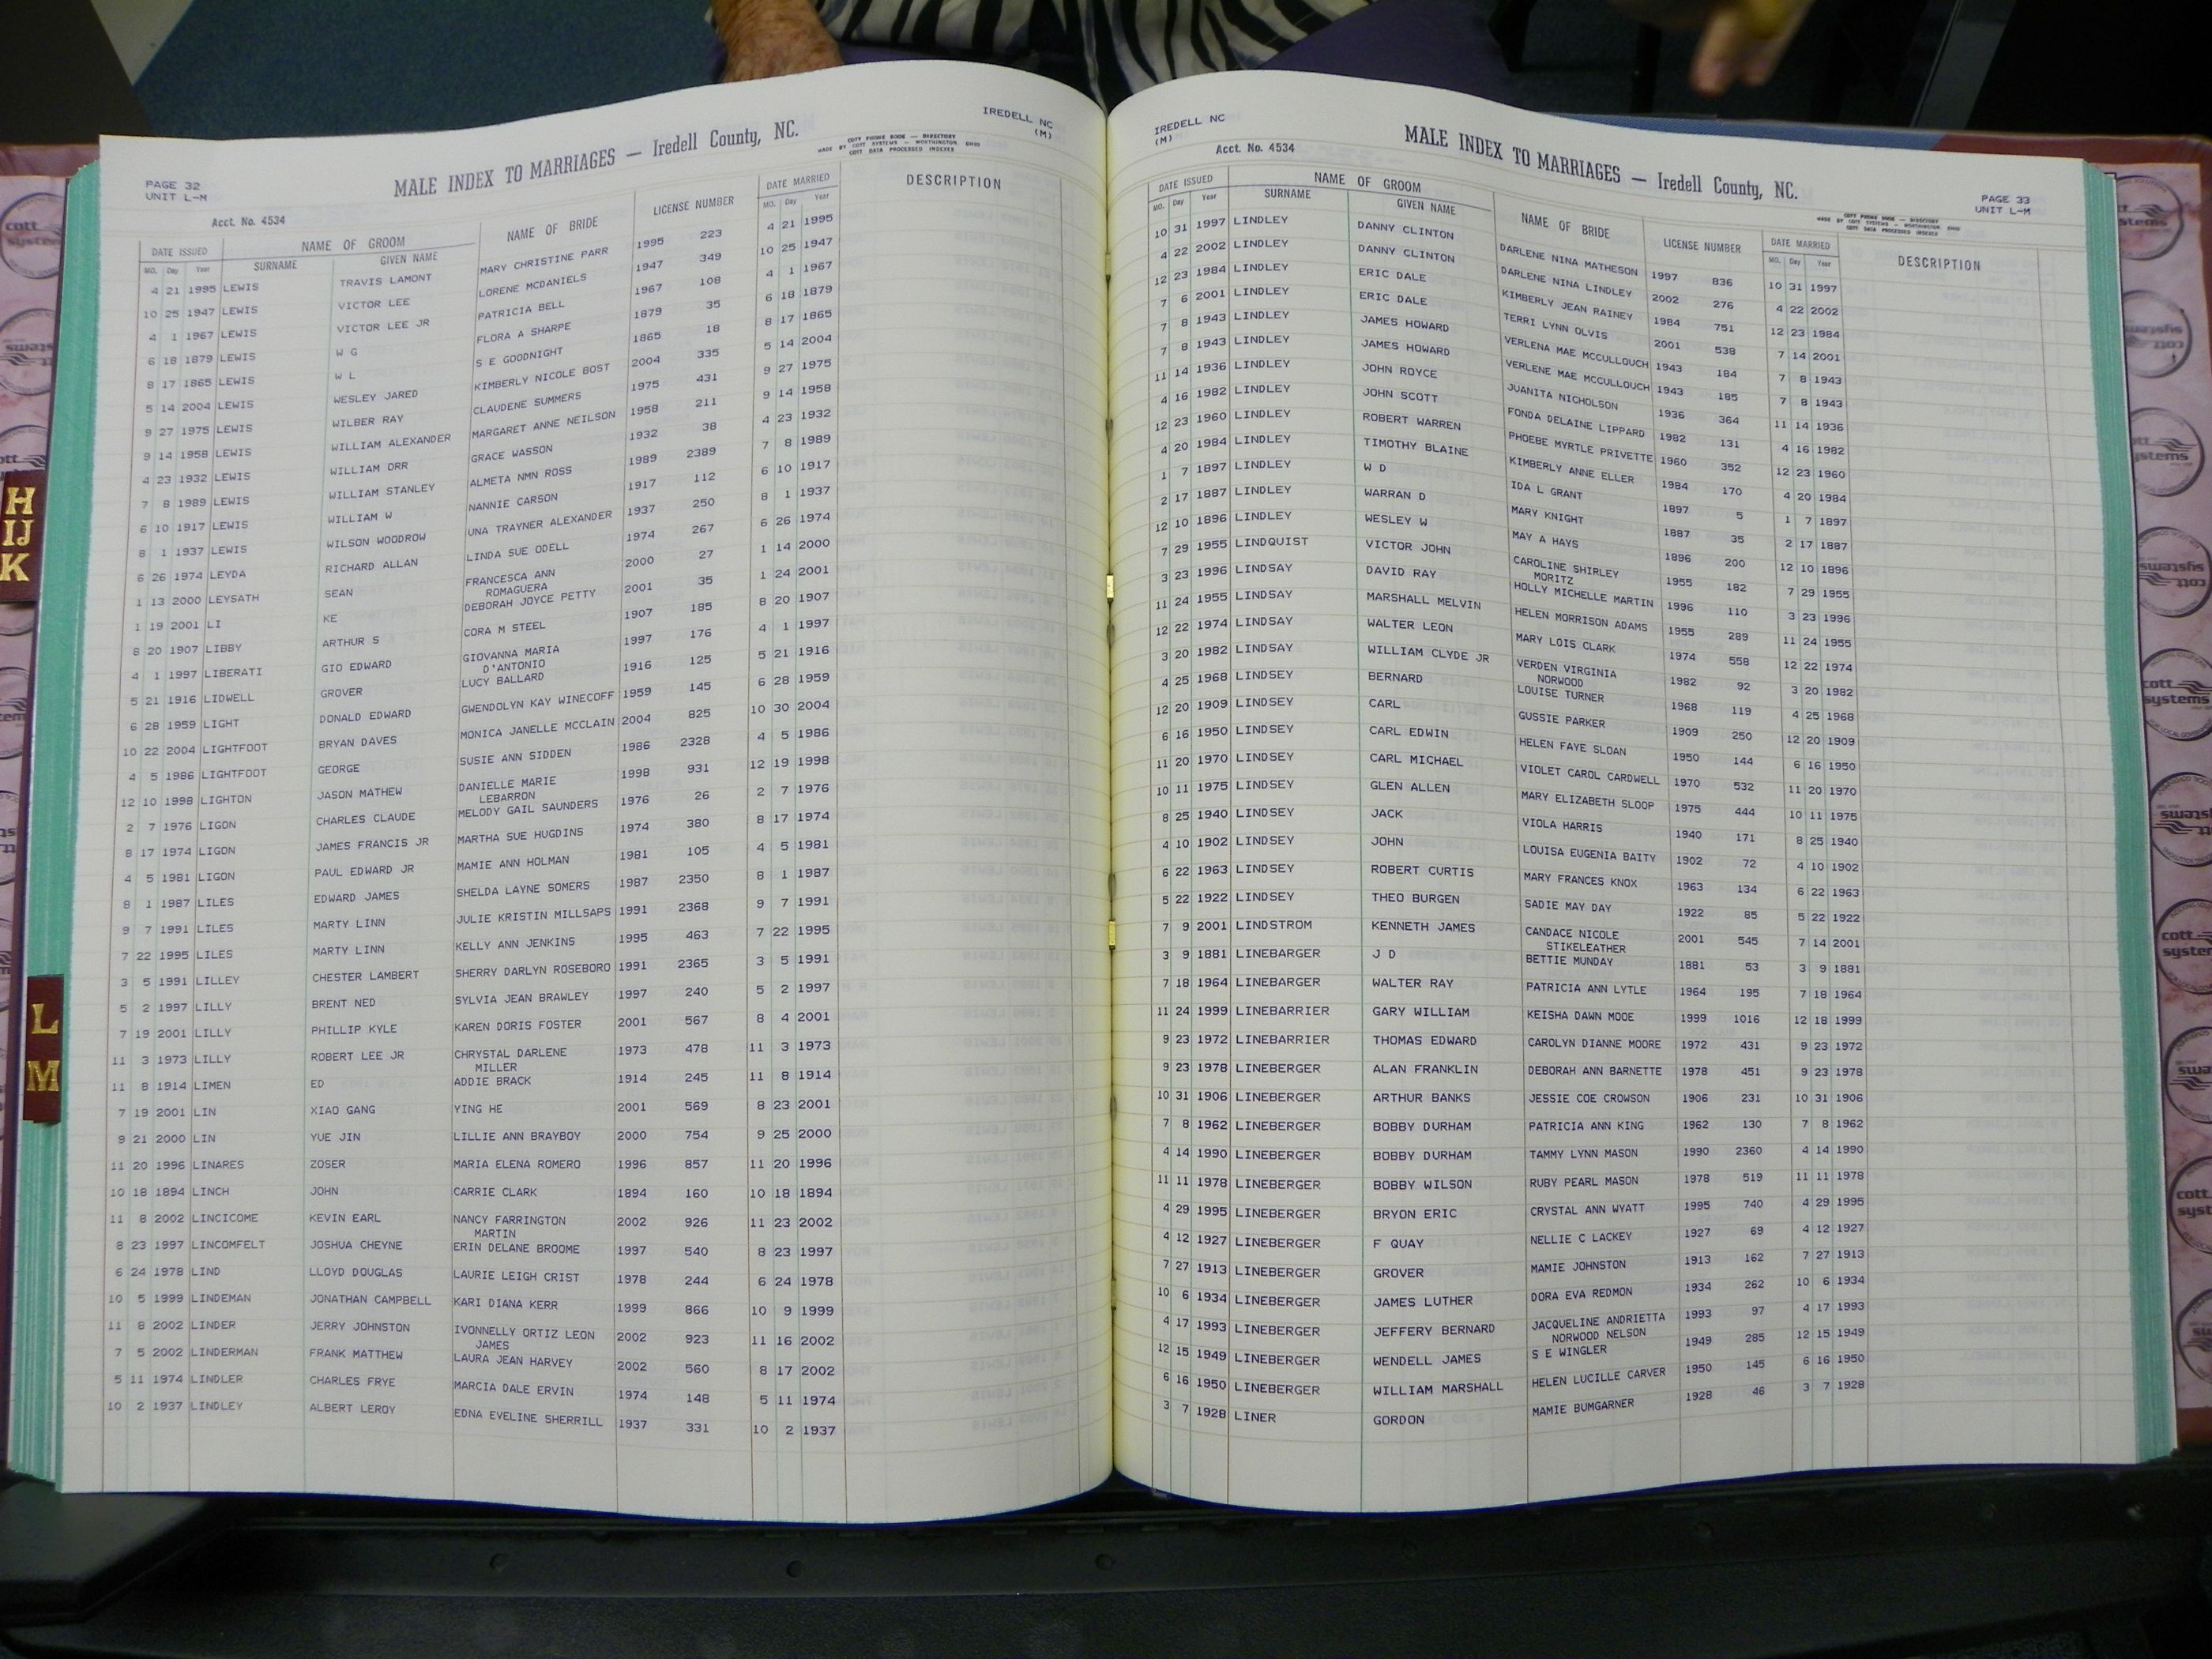 IREDELL NC
(M)
MALE INDEX TO MARRIAGES — Iredell County, NC.
COTT PHONE BOOK — DIRECTORY
MADE BY COTT SYSTEMS — WORTHINGTON, OHIO
COTT DATA PROCESSED INDEXES
PAGE 32
UNIT L-M
Acct. No. 4534
DATE ISSUED NAME OF GROOM NAME OF BRIDE LICENSE NUMBER DATE MARRIED DESCRIPTION
MO. Day Year SURNAME GIVEN NAME MO. Day Year
4 21 1995 LEWIS TRAVIS LAMONT MARY CHRISTINE PARR 1995 223 4 21 1995
10 25 1947 LEWIS VICTOR LEE LORENE MCDANIELS 1947 349 10 25 1947
4 1 1967 LEWIS VICTOR LEE JR PATRICIA BELL 1967 108 4 1 1967
6 18 1879 LEWIS W G FLORA A SHARPE 1879 35 6 18 1879
8 17 1865 LEWIS W L S E GOODNIGHT 1865 18 8 17 1865
5 14 2004 LEWIS WESLEY JARED KIMBERLY NICOLE BOST 2004 335 5 14 2004
9 27 1975 LEWIS WILBER RAY CLAUDENE SUMMERS 1975 431 9 27 1975
9 14 1958 LEWIS WILLIAM ALEXANDER MARGARET ANNE NEILSON 1958 211 9 14 1958
4 23 1932 LEWIS WILLIAM ORR GRACE WASSON 1932 38 4 23 1932
7 8 1989 LEWIS WILLIAM STANLEY ALMETA NMN ROSS 1989 2389 7 8 1989
6 10 1917 LEWIS WILLIAM W NANNIE CARSON 1917 112 6 10 1917
8 1 1937 LEWIS WILSON WOODROW UNA TRAYNER ALEXANDER 1937 250 8 1 1937
6 26 1974 LEYDA RICHARD ALLAN LINDA SUE ODELL 1974 267 6 26 1974
1 13 2000 LEYSATH SEAN FRANCESCA ANN 2000 27 1 14 2000
ROMAGUERA
1 19 2001 LI KE DEBORAH JOYCE PETTY 2001 35 1 24 2001
8 20 1907 LIBBY ARTHUR S CORA M STEEL 1907 185 8 20 1907
4 1 1997 LIBERATI GIO EDWARD GIOVANNA MARIA 1997 176 4 1 1997
D'ANTONIO
5 21 1916 LIDWELL GROVER LUCY BALLARD 1916 125 5 21 1916
6 28 1959 LIGHT DONALD EDWARD GWENDOLYN KAY WINECOFF 1959 145 6 28 1959
10 22 2004 LIGHTFOOT BRYAN DAVES MONICA JANELLE MCCLAIN 2004 825 10 30 2004
4 5 1986 LIGHTFOOT GEORGE SUSIE ANN SIDDEN 1986 2328 4 5 1986
12 10 1998 LIGHTON JASON MATHEW DANIELLE MARIE 1998 931 12 19 1998
LEBARRON
2 7 1976 LIGON CHARLES CLAUDE MELODY GAIL SAUNDERS 1976 26 2 7 1976
8 17 1974 LIGON JAMES FRANCIS JR MARTHA SUE HUGDINS 1974 380 8 17 1974
4 5 1981 LIGON PAUL EDWARD JR MAMIE ANN HOLMAN 1981 105 4 5 1981
8 1 1987 LILES EDWARD JAMES SHELDA LAYNE SOMERS 1987 2350 8 1 1987
9 7 1991 LILES MARTY LINN JULIE KRISTIN MILLSAPS 1991 2368 9 7 1991
7 22 1995 LILES MARTY LINN KELLY ANN JENKINS 1995 463 7 22 1995
3 5 1991 LILLEY CHESTER LAMBERT SHERRY DARLYN ROSEBORO 1991 2365 3 5 1991
5 2 1997 LILLY BRENT NED SYLVIA JEAN BRAWLEY 1997 240 5 2 1997
7 19 2001 LILLY PHILLIP KYLE KAREN DORIS FOSTER 2001 567 8 4 2001
11 3 1973 LILLY ROBERT LEE JR CHRYSTAL DARLENE 1973 478 11 3 1973
MILLER
11 8 1914 LIMEN ED ADDIE BRACK 1914 245 11 8 1914
7 19 2001 LIN XIAO GANG YING HE 2001 569 8 23 2001
9 21 2000 LIN YUE JIN LILLIE ANN BRAYBOY 2000 754 9 25 2000
11 20 1996 LINARES ZOSER MARIA ELENA ROMERO 1996 857 11 20 1996
10 18 1894 LINCH JOHN CARRIE CLARK 1894 160 10 18 1894
11 8 2002 LINCICOME KEVIN EARL NANCY FARRINGTON 2002 926 11 23 2002
MARTIN
8 23 1997 LINCOMFELT JOSHUA CHEYNE ERIN DELANE BROOME 1997 540 8 23 1997
6 24 1978 LIND LLOYD DOUGLAS LAURIE LEIGH CRIST 1978 244 6 24 1978
10 5 1999 LINDEMAN JONATHAN CAMPBELL KARI DIANA KERR 1999 866 10 9 1999
11 8 2002 LINDER JERRY JOHNSTON IVONNELLY ORTIZ LEON 2002 923 11 16 2002
JAMES
7 5 2002 LINDERMAN FRANK MATTHEW LAURA JEAN HARVEY 2002 560 8 17 2002
5 11 1974 LINDLER CHARLES FRYE MARCIA DALE ERVIN 1974 148 5 11 1974
10 2 1937 LINDLEY ALBERT LEROY EDNA EVELINE SHERRILL 1937 331 10 2 1937
H
IJ
K
L
M
IREDELL NC
(M)
Acct. No. 4534
MALE INDEX TO MARRIAGES — Iredell County, NC.
COTT PHONE BOOK — DIRECTORY
MADE BY COTT SYSTEMS — WORTHINGTON, OHIO
COTT DATA PROCESSED INDEXES
PAGE 33
UNIT L-M
DATE ISSUED NAME OF GROOM NAME OF BRIDE LICENSE NUMBER DATE MARRIED DESCRIPTION
MO. Day Year SURNAME GIVEN NAME MO. Day Year
10 31 1997 LINDLEY DANNY CLINTON DARLENE NINA MATHESON 1997 836 10 31 1997
4 22 2002 LINDLEY DANNY CLINTON DARLENE NINA LINDLEY 2002 276 4 22 2002
12 23 1984 LINDLEY ERIC DALE KIMBERLY JEAN RAINEY 1984 751 12 23 1984
7 6 2001 LINDLEY ERIC DALE TERRI LYNN OLVIS 2001 538 7 14 2001
7 8 1943 LINDLEY JAMES HOWARD VERLENA MAE MCCULLOUCH 1943 184 7 8 1943
7 8 1943 LINDLEY JAMES HOWARD VERLENE MAE MCCULLOUCH 1943 185 7 8 1943
11 14 1936 LINDLEY JOHN ROYCE JUANITA NICHOLSON 1936 364 11 14 1936
4 16 1982 LINDLEY JOHN SCOTT FONDA DELAINE LIPPARD 1982 131 4 16 1982
12 23 1960 LINDLEY ROBERT WARREN PHOEBE MYRTLE PRIVETTE 1960 352 12 23 1960
4 20 1984 LINDLEY TIMOTHY BLAINE KIMBERLY ANNE ELLER 1984 170 4 20 1984
1 7 1897 LINDLEY W D IDA L GRANT 1897 5 1 7 1897
2 17 1887 LINDLEY WARRAN D MARY KNIGHT 1887 35 2 17 1887
12 10 1896 LINDLEY WESLEY W MAY A HAYS 1896 200 12 10 1896
7 29 1955 LINDQUIST VICTOR JOHN CAROLINE SHIRLEY 1955 182 7 29 1955
MORITZ
3 23 1996 LINDSAY DAVID RAY HOLLY MICHELLE MARTIN 1996 110 3 23 1996
11 24 1955 LINDSAY MARSHALL MELVIN HELEN MORRISON ADAMS 1955 289 11 24 1955
12 22 1974 LINDSAY WALTER LEON MARY LOIS CLARK 1974 558 12 22 1974
3 20 1982 LINDSAY WILLIAM CLYDE JR VERDEN VIRGINIA 1982 92 3 20 1982
NORWOOD
4 25 1968 LINDSEY BERNARD LOUISE TURNER 1968 119 4 25 1968
12 20 1909 LINDSEY CARL GUSSIE PARKER 1909 250 12 20 1909
6 16 1950 LINDSEY CARL EDWIN HELEN FAYE SLOAN 1950 144 6 16 1950
11 20 1970 LINDSEY CARL MICHAEL VIOLET CAROL CARDWELL 1970 532 11 20 1970
10 11 1975 LINDSEY GLEN ALLEN MARY ELIZABETH SLOOP 1975 444 10 11 1975
8 25 1940 LINDSEY JACK VIOLA HARRIS 1940 171 8 25 1940
4 10 1902 LINDSEY JOHN LOUISA EUGENIA BAITY 1902 72 4 10 1902
6 22 1963 LINDSEY ROBERT CURTIS MARY FRANCES KNOX 1963 134 6 22 1963
5 22 1922 LINDSEY THEO BURGEN SADIE MAY DAY 1922 85 5 22 1922
7 9 2001 LINDSTROM KENNETH JAMES CANDACE NICOLE 2001 545 7 14 2001
STIKELEATHER
3 9 1881 LINEBARGER J D BETTIE MUNDAY 1881 53 3 9 1881
7 18 1964 LINEBARGER WALTER RAY PATRICIA ANN LYTLE 1964 195 7 18 1964
11 24 1999 LINEBARRIER GARY WILLIAM KEISHA DAWN MOOE 1999 1016 12 18 1999
9 23 1972 LINEBARRIER THOMAS EDWARD CAROLYN DIANNE MOORE 1972 431 9 23 1972
9 23 1978 LINEBERGER ALAN FRANKLIN DEBORAH ANN BARNETTE 1978 451 9 23 1978
10 31 1906 LINEBERGER ARTHUR BANKS JESSIE COE CROWSON 1906 231 10 31 1906
7 8 1962 LINEBERGER BOBBY DURHAM PATRICIA ANN KING 1962 130 7 8 1962
4 14 1990 LINEBERGER BOBBY DURHAM TAMMY LYNN MASON 1990 2360 4 14 1990
11 11 1978 LINEBERGER BOBBY WILSON RUBY PEARL MASON 1978 519 11 11 1978
4 29 1995 LINEBERGER BRYON ERIC CRYSTAL ANN WYATT 1995 740 4 29 1995
4 12 1927 LINEBERGER F QUAY NELLIE C LACKEY 1927 69 4 12 1927
7 27 1913 LINEBERGER GROVER MAMIE JOHNSTON 1913 162 7 27 1913
10 6 1934 LINEBERGER JAMES LUTHER DORA EVA REDMON 1934 262 10 6 1934
4 17 1993 LINEBERGER JEFFERY BERNARD JACQUELINE ANDRIETTA 1993 97 4 17 1993
NORWOOD NELSON
12 15 1949 LINEBERGER WENDELL JAMES S E WINGLER 1949 285 12 15 1949
6 16 1950 LINEBERGER WILLIAM MARSHALL HELEN LUCILLE CARVER 1950 145 6 16 1950
3 7 1928 LINER GORDON MAMIE BUMGARNER 1928 46 3 7 1928
cott systems